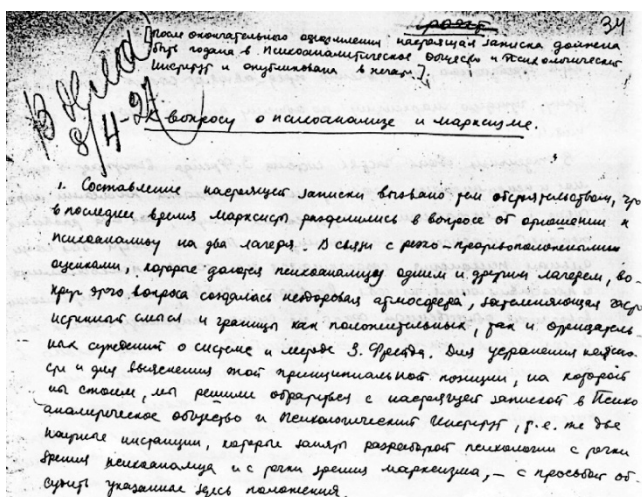 проект 34
[После окончательного одобрения настоящая записка должна
быть подана в Психоаналитическое Общество и Психологический
Институт и опубликована в печати].
В дело
8/4-27
К вопросу о психоанализе и марксизме.
1. Составление настоящей записки вызвано тем обстоятельством, что
в последнее время марксисты разделились в вопросе об отношении к
психоанализу на два лагеря. В связи с резко-противоположными
оценками, которые даются психоанализу одним и другим лагерем, во-
круг этого вопроса создалась нездоровая атмосфера, затемняющая часто
истинный смысл и границы как положительных, так и отрицатель-
ных суждений о системе и методе З. Фрейда. Для устранения неясно-
сти и для выяснения той принципиальной позиции, на которой
мы стоим, мы решили обратиться с настоящей запиской в Психо
аналитическое общество и Психологический Институт, т.е. те две
научные инстанции, которые заняты разработкой психологии с точки
зрения психоанализа и с точки зрения марксизма, – с просьбой об
судить указанные здесь положения.